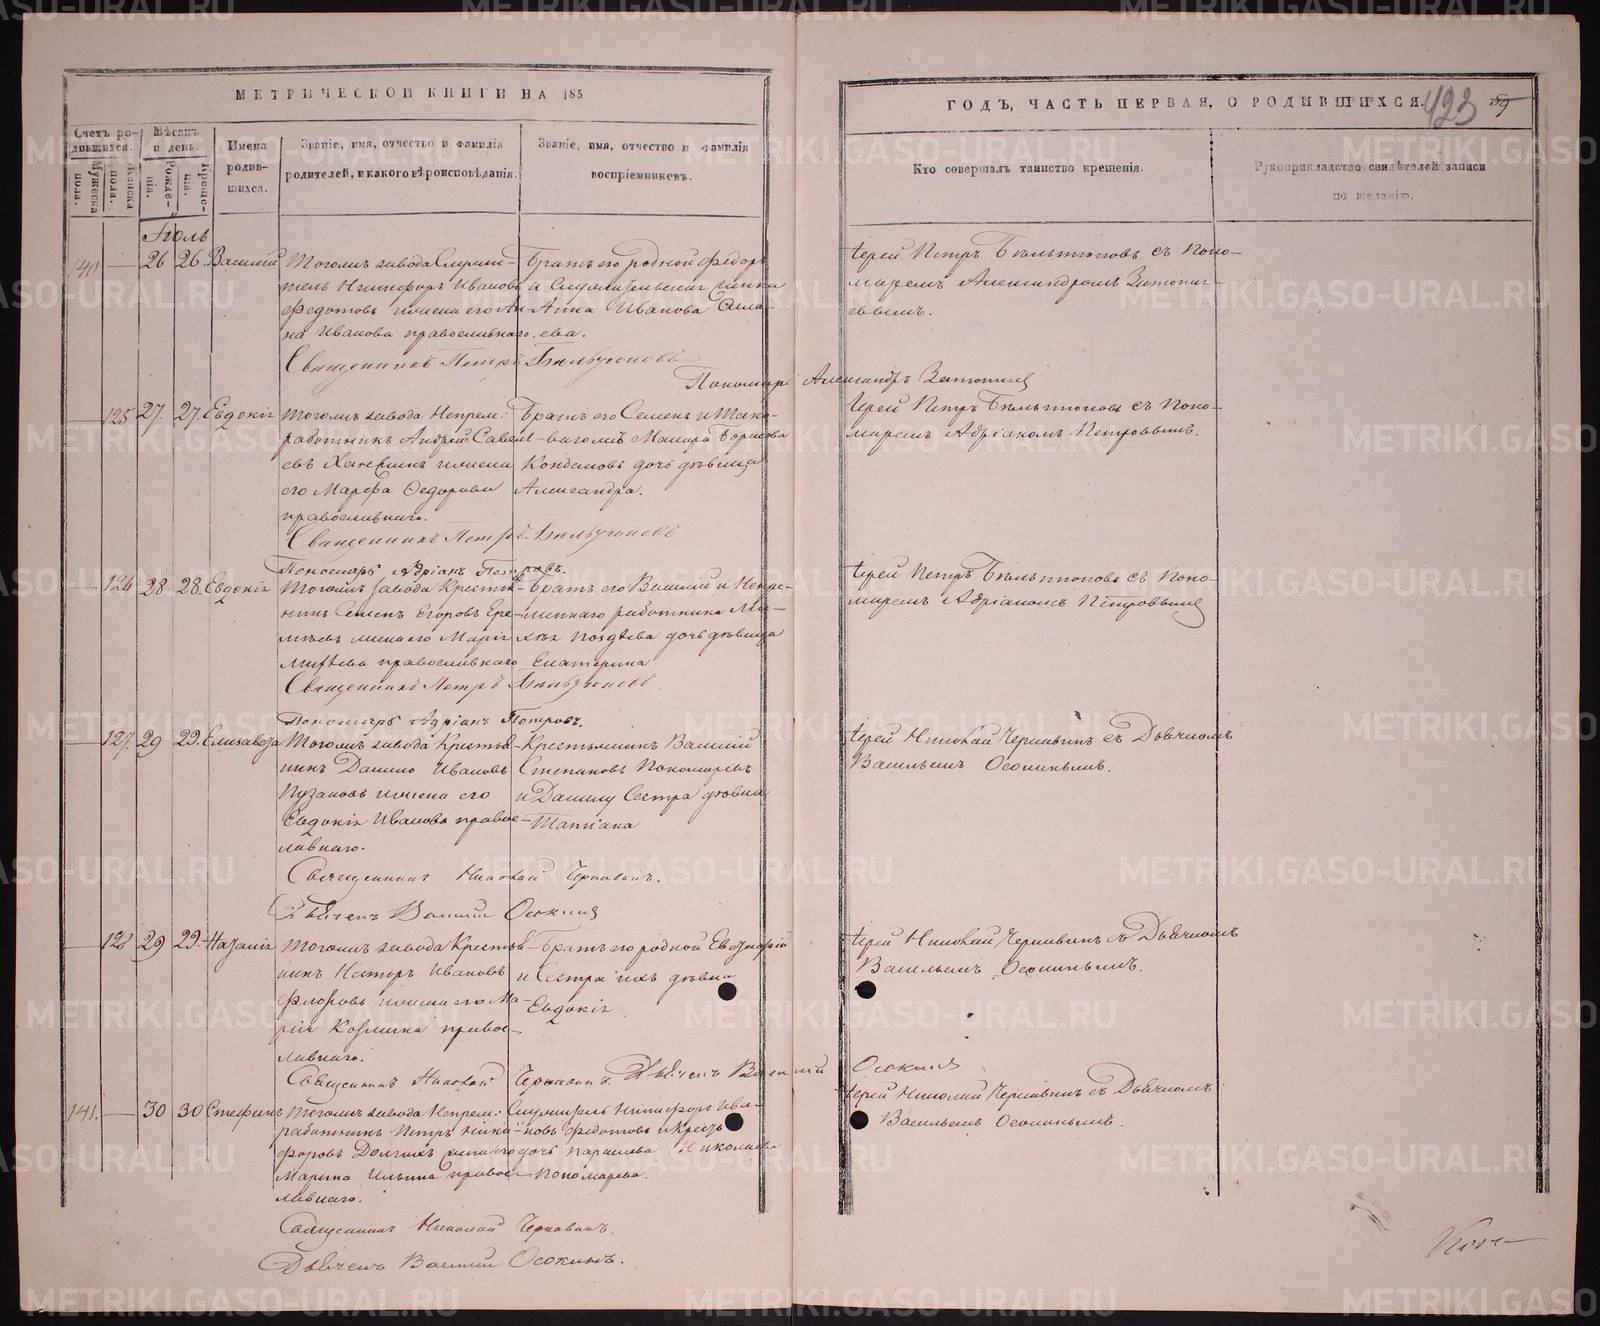 МЕТРИЧЕСКОЙ КНИГИ НА 185
ГОДЪ, ЧАСТЬ ПЕРВАЯ, О РОДИВШИХСЯ.
423
59
Счетъ родившихся.
Мужеска пола.
Женска пола.
Мѣсяцъ и день.
Рожденія.
Крещенія.
Имена родившихся.
Званіе, имя, отчество и фамилія родителей, и какого вѣроисповѣданія.
Званіе, имя, отчество и фамилія воспріемниковъ.
Кто совершалъ таинство крещенія.
Рукоприкладство свидѣтелей записи по желанію.
Іюль
140 — 26 26 Василій
Тогожъ завода Служи-
тель Никифоръ Ивановъ
Федотовъ и жена его Ан-
на Иванова православнаго
Братъ его родной Федоръ
и Служительская жинка
Анна Иванова
ева.
Іерей Петръ Бѣльтюковъ съ Поно-
маремъ Александромъ
евымъ.
Священникъ Петръ Бѣльтюковъ
Пономарь Александръ
— 125 27. 27. Евдокія
Тогожъ завода Непрем:
работникъ Андрей Савель-
евъ и жена
его Марфа Федорова
православнаго.
Братъ его Семенъ и Тако-
вагожъ Макара Борисова
дочь дѣвица
Александра.
Іерей Петръ Бѣльтюковъ съ Поно-
маремъ Адріаномъ Петровымъ.
Священникъ Петръ Бѣльтюковъ
Пономарь Адріанъ Петровъ.
— 126 28 28. Евдокія
Тогожъ завода Крестья-
нинъ Семенъ Егоровъ Ере-
мѣевъ жена его Марія
православнаго
Братъ его Василій и Непре-
мѣннаго работника
дочь дѣвица
Екатерина
Іерей Петръ Бѣльтюковъ съ Поно-
маремъ Адріаномъ Петровымъ
Священникъ Петръ Бѣльтюковъ
Пономарь Адріанъ Петровъ.
— 127. 29 29. Елизавета
Тогожъ завода Крестья-
нинъ Данило Ивановъ
Пузановъ и жена его
Евдокія Иванова право-
славнаго.
Крестьянинъ Василій
Степановъ Пономаревъ
и Данилу Сестра дѣвка
Татіана
Іерей Николай Чернавинъ съ Дьячкомъ
Васильемъ Осокинымъ.
Священникъ Николай Чернавинъ.
Дьячекъ Василій Осокинъ
— 128 29 29.
Тогожъ завода Крестья-
нинъ Несторъ Ивановъ
Флоровъ и жена его Ма-
рія Козмина право-
славнаго.
Братъ его родной
и Сестра ихъ дѣвка
Евдокія
Іерей Николай Чернавинъ съ Дьячкомъ
Васильемъ Осокинымъ.
Священникъ Николай Чернавинъ. Дьячекъ Василій Осокинъ
141. — 30 30 Стефанъ
Тогожъ завода Непрем:
работникъ Петръ Ники-
форовъ Долгихъ жена его
Марина Ильина право-
славнаго.
Служитель Никифоръ Ива-
новъ Федотовъ и Крестъ
дочь Параскева Николаева
Пономарева.
Іерей Николай Чернавинъ съ Дьячкомъ
Васильемъ Осокинымъ.
Священникъ Николай Чернавинъ.
Дьячекъ Василій Осокинъ.
METRIKI.GASO-URAL.RU